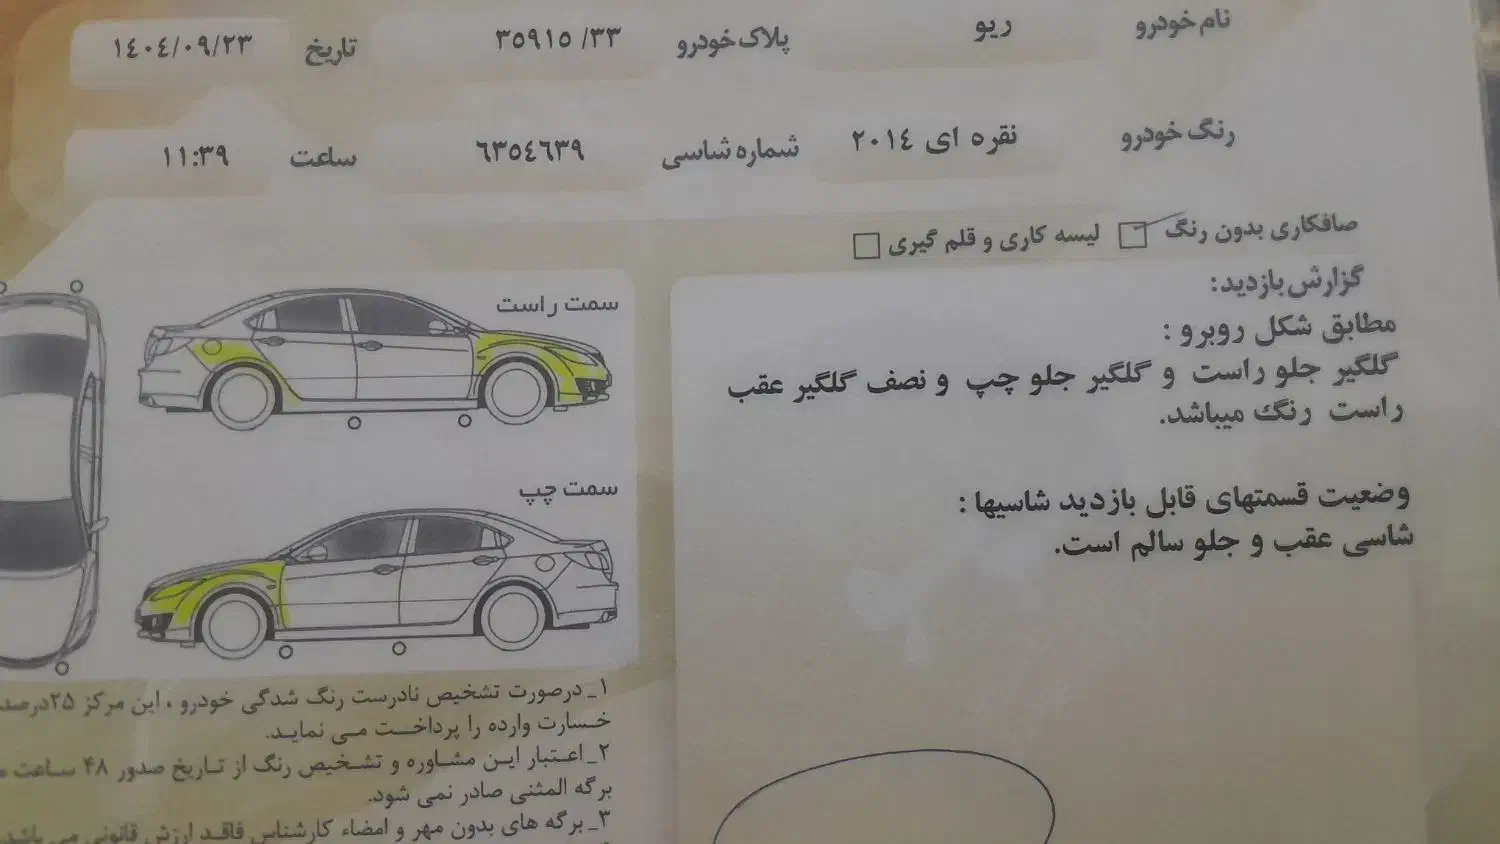 نام خودرو ریو پلاک خودرو ۳۵۹۱۵ /۳۳ تاریخ ۱٤۰٤/۰۹/۲۳
رنگ خودرو نقره ای ۲۰۱٤ شماره شاسی ٦۳٥٤٦۳۹ ساعت ۱۱:۳۹
صافکاری بدون رنگ لیسه کاری و قلم گیری
گزارش بازدید:
مطابق شکل روبرو :
گلگیر جلو راست و گلگیر جلو چپ و نصف گلگیر عقب
راست رنگ میباشد.
وضعیت قسمتهای قابل بازدید شاسیها :
شاسی عقب و جلو سالم است.
سمت راست
سمت چپ
۱_ درصورت تشخیص نادرست رنگ شدگی خودرو ، این مرکز ۲۵درصد
خسارت وارده را پرداخت می نماید.
۲_ اعتبار این مشاوره و تشخیص رنگ از تاریخ صدور ۴۸ ساعت
برگه المثنی صادر نمی شود.
۳_ برگه های بدون مهر و امضاء کارشناس فاقد ارزش قانونی می باشد.